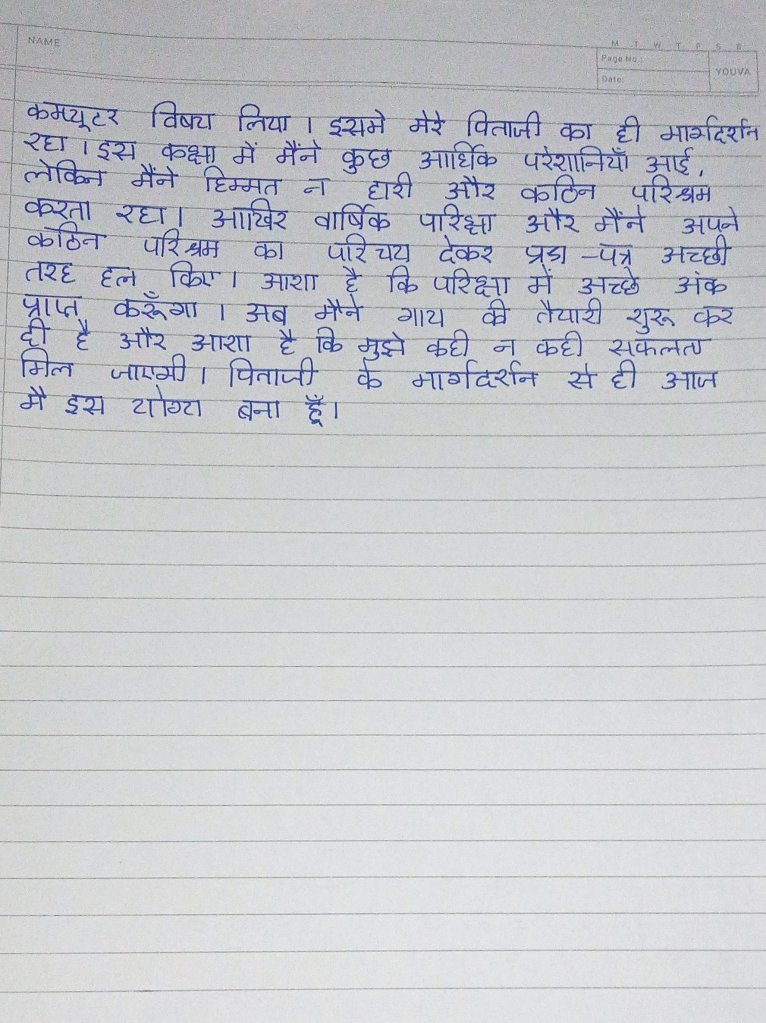 NAME
M T W T F S S
Page No.:
YOUVA
Date:
कम्प्यूटर विषय लिया । इसमे मेरे पिताजी का ही मार्गदर्शन
रहा । इस कक्षा में मैंने कुछ आर्थिक परेशानियाँ आई,
लेकिन मैंने हिम्मत न हारी और कठिन परिश्रम
करता रहा । आखिर वार्षिक परिक्षा और मैंने अपने
कठिन परिश्रम का परिचय देकर प्रश्न-पत्र अच्छी
तरह हल किए । आशा है कि परिक्षा में अच्छे अंक
प्राप्त करूँगा । अब मैने गाय की तैयारी शुरू कर
दी है और आशा है कि मुझे कही न कही सफलता
मिल जाएगी । पिताजी के मार्गदर्शन से ही आज
मै इस योग्य बना हूँ ।